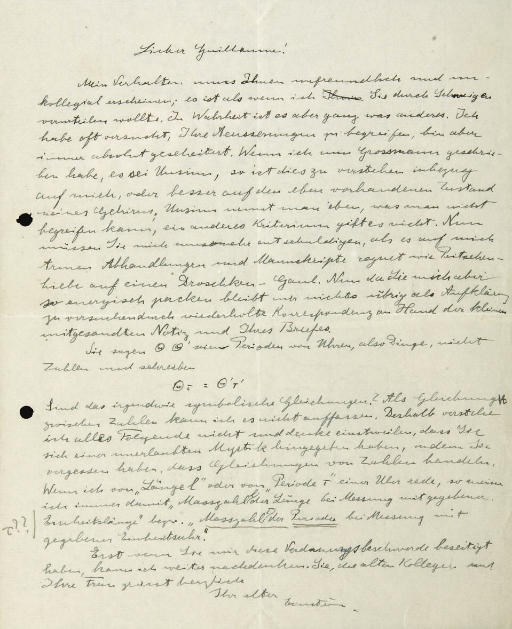 Lieber Guillaume!
Mein Verhalten muss Ihnen unfreundlich und un-
kollegial erscheinen; es ist als wenn ich Ihnen Sie durch Schweigen
verurteilen wollte. In Wahrheit ist es aber ganz was anderes. Ich
habe oft versucht, Ihre Aeusserungen zu begreifen, bin aber
immer absolut gescheitert. Wenn ich an Grossmann geschrie-
ben habe, es sei Unsinn, so ist dies zu verstehen inbezug
auf mich, oder besser auf den eben vorhandenen Zustand
meines Gehirns; Unsinn nennt man eben, was man nicht
begreifen kann, ein anderes Kriterium gibt es nicht. Nun
müssen Sie mich umso mehr entschuldigen, als es auf mich
armen Abhandlungen und Manuskripte regnet wie Peitschen-
hiebe auf einen Droschken-Gaul. Nun da Sie mich aber
so energisch packen bleibt mir nichts übrig als Aufklärung
zu versuchen durch wiederholte Korrespondenz an Hand der kleinen
mitgesandten Notiz und Ihres Briefes.
Sie sagen Θ Θ' seien Perioden von Uhren, also Dinge, nicht
Zahlen und schreiben
Θτ = Θ'τ'
Sind das irgendwie symbolische Gleichungen? Als Gleichung
zwischen Zahlen kann ich es nicht auffassen. Deshalb verstehe
ich alles Folgende nicht und denke einstweilen, dass Sie
sich einer unerlaubten Mystik hingegeben haben, indem Sie
vergessen haben, dass Gleichungen von Zahlen handeln.
Wenn ich von „Länge l" oder von „Periode τ einer Uhr rede, so meine
ich immer damit „Masszahl l der Länge bei Messung mit gegebener
Einheitslänge" bezw. „Masszahl der Periode bei Messung mit
gegebener Einheitsuhr."
τ??
Erst wenn Sie mir diese Verdauungsbeschwerde beseitigt
haben, kann ich weiter nachdenken. Sie, des alten Kollegen und
Ihre Frau grüsst herzlich
Ihr alter
Einstein.